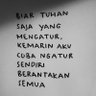 BIAR TUHAN
SAJA YANG
MENGATUR,
KEMARIN AKU
CUBA NGATUR
SENDIRI
BERANTAKAN
SEMUA